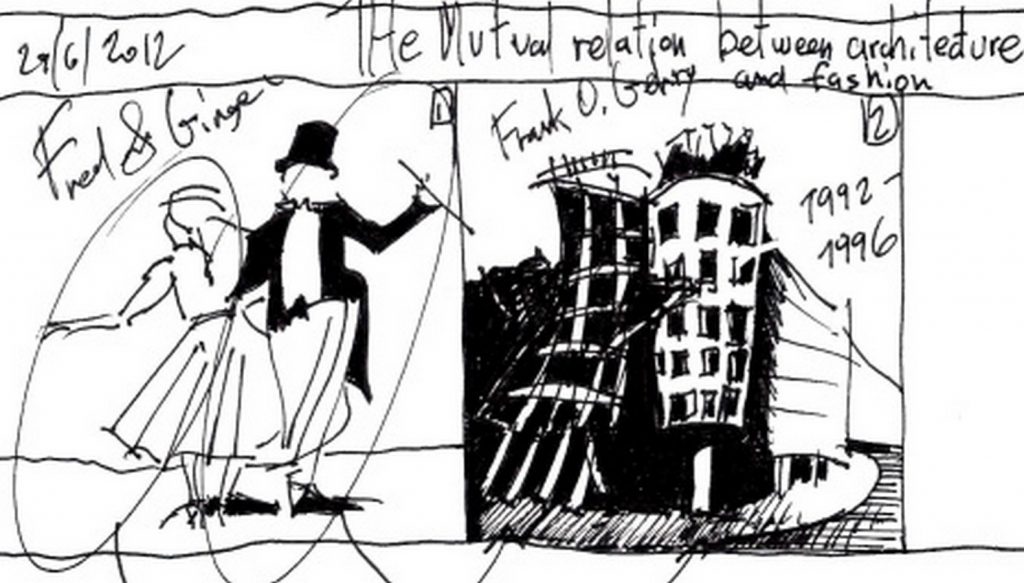 29/6/2012
The Mutual relation between architecture
and fashion
Fred & Ginger
1
Frank O. Gehry
2
1992-
1996